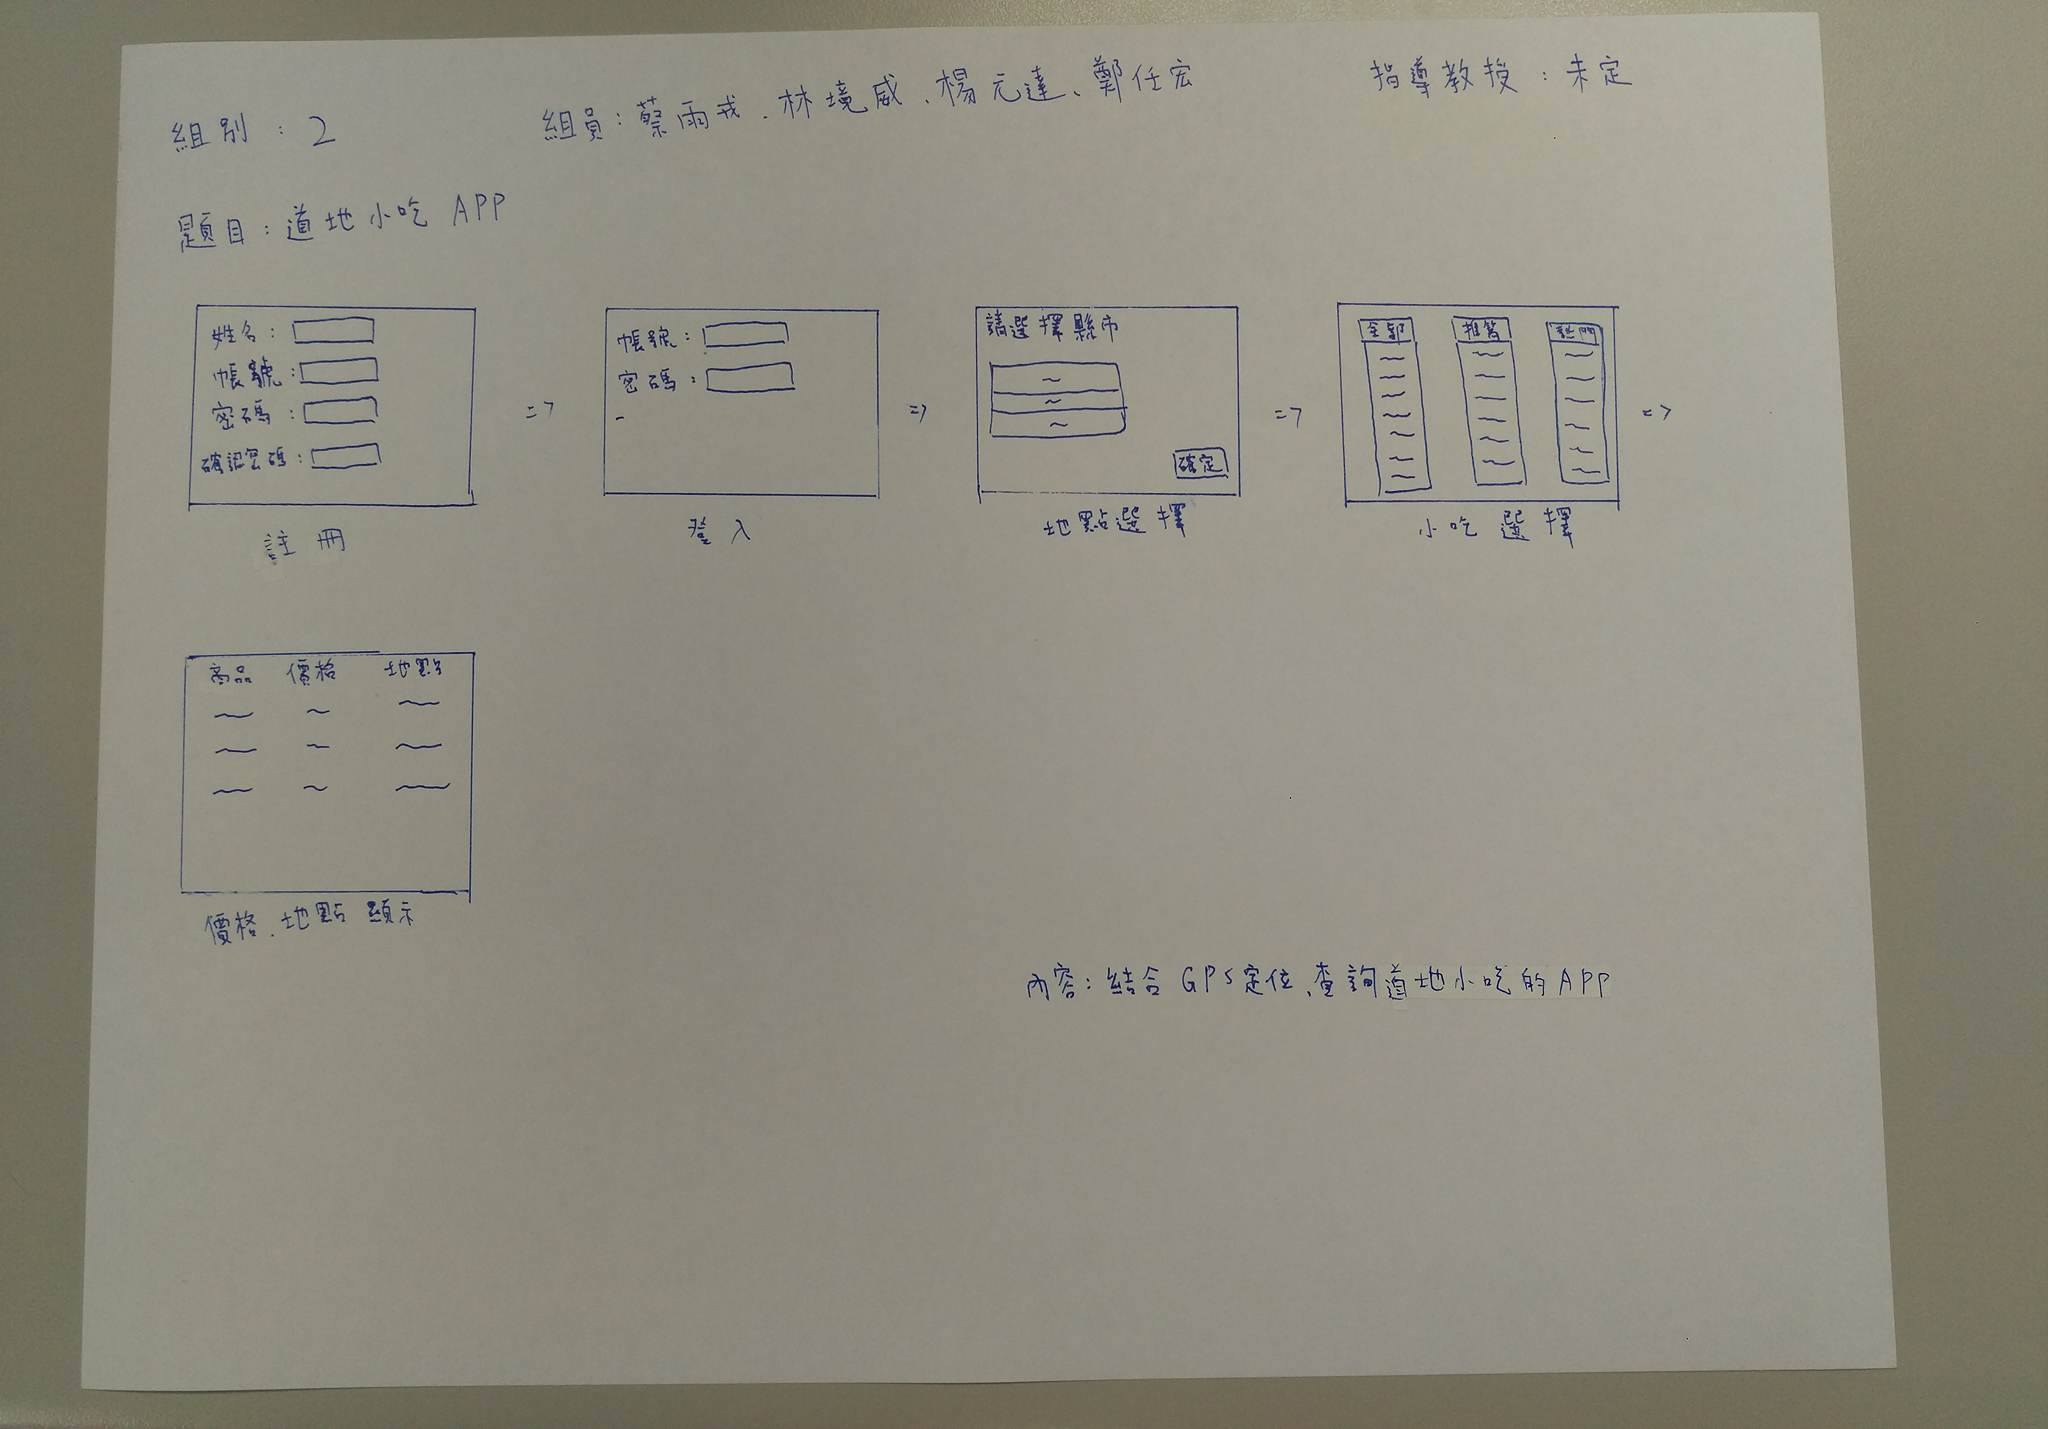 組別：2
組員：蔡雨戎、林境威、楊元達、鄭任宏
指導教授：未定
題目：道地小吃 APP
姓名：
帳號：
密碼：
確認密碼：
註冊
=>
帳號：
密碼：
登入
=>
請選擇縣市
確定
地點選擇
=>
全部 推薦 熱門
小吃選擇
=>
商品 價格 地點
價格、地點顯示
內容：結合GPS定位、查詢道地小吃的APP